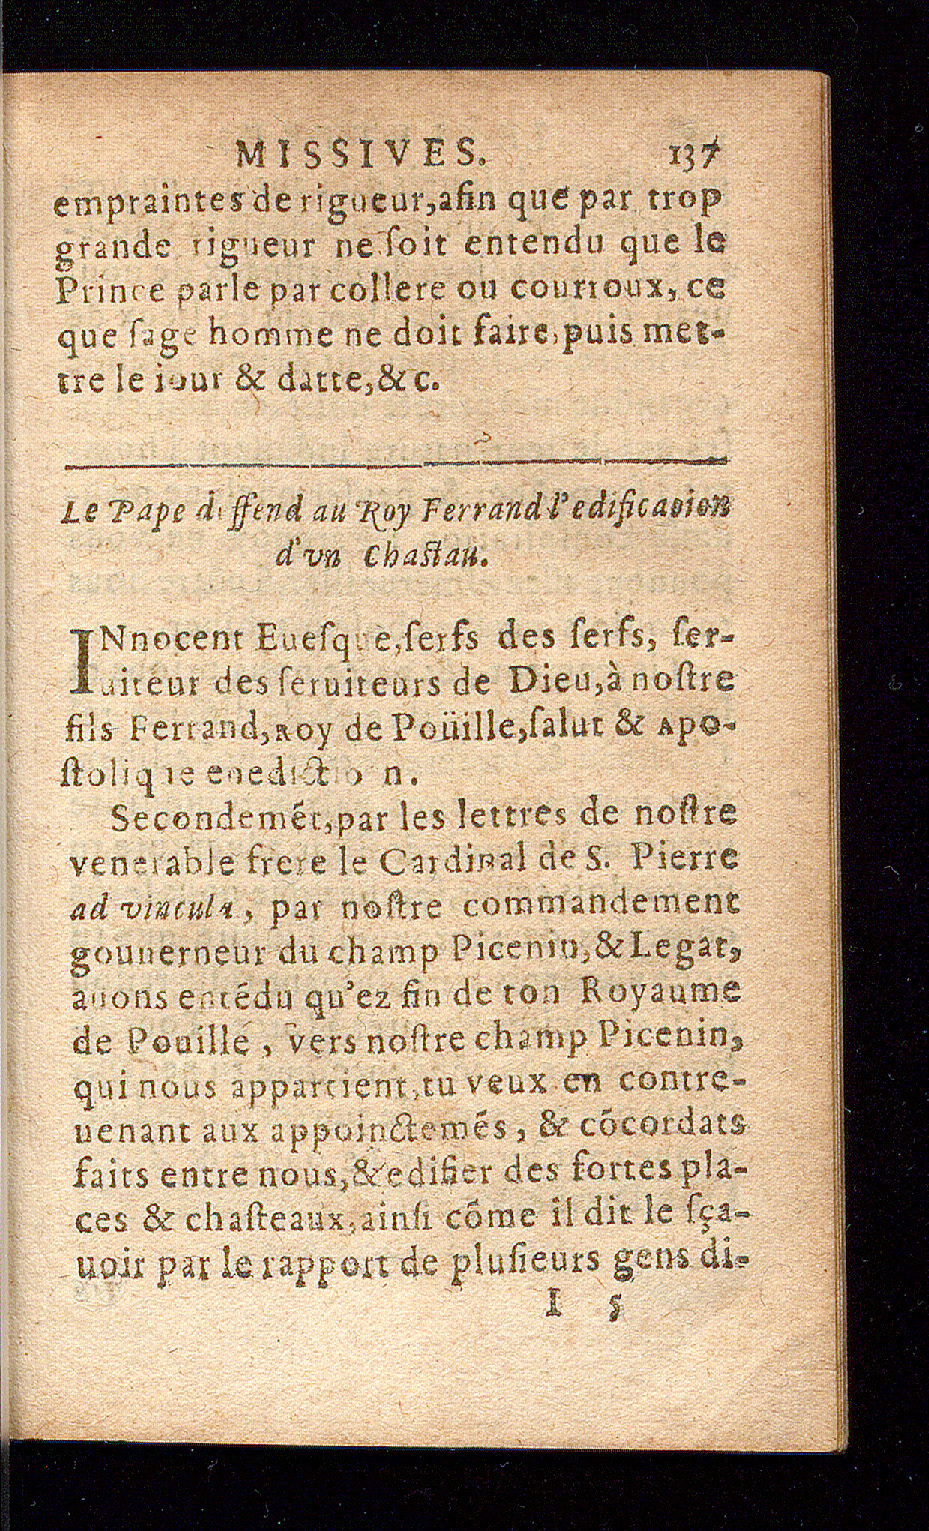 MISSIVES. 137
empraintes de rigueur,afin que par trop
grande rigueur ne ſoit entendu que le
Prince parle par collere ou courroux, ce
que ſage homme ne doit faire,puis met-
tre le iour & datte,&c.
Le Pape diffend au Roy Ferrand l'edificaoion
d'vn Chaſtau.
INnocent Eueſque,ſerfs des ſerfs, ſer-
uiteur des ſeruiteurs de Dieu,à noſtre
fils Ferrand,Roy de Poüille,ſalut & Apo-
ſtolique enediction.
Secondemét,par les lettres de noſtre
venerable frere le Cardinal de S. Pierre
ad vincula, par noſtre commandement
gouuerneur du champ Picenin,& Legat,
auons entédu qu'ez fin de ton Royaume
de Pouille, vers noſtre champ Picenin,
qui nous appartient,tu veux en contre-
uenant aux appoinctemés, & cõcordats
faits entre nous,& edifier des fortes pla-
ces & chaſteaux,ainſi cõme il dit le ſça-
uoir par le rapport de pluſieurs gens di-
I 5